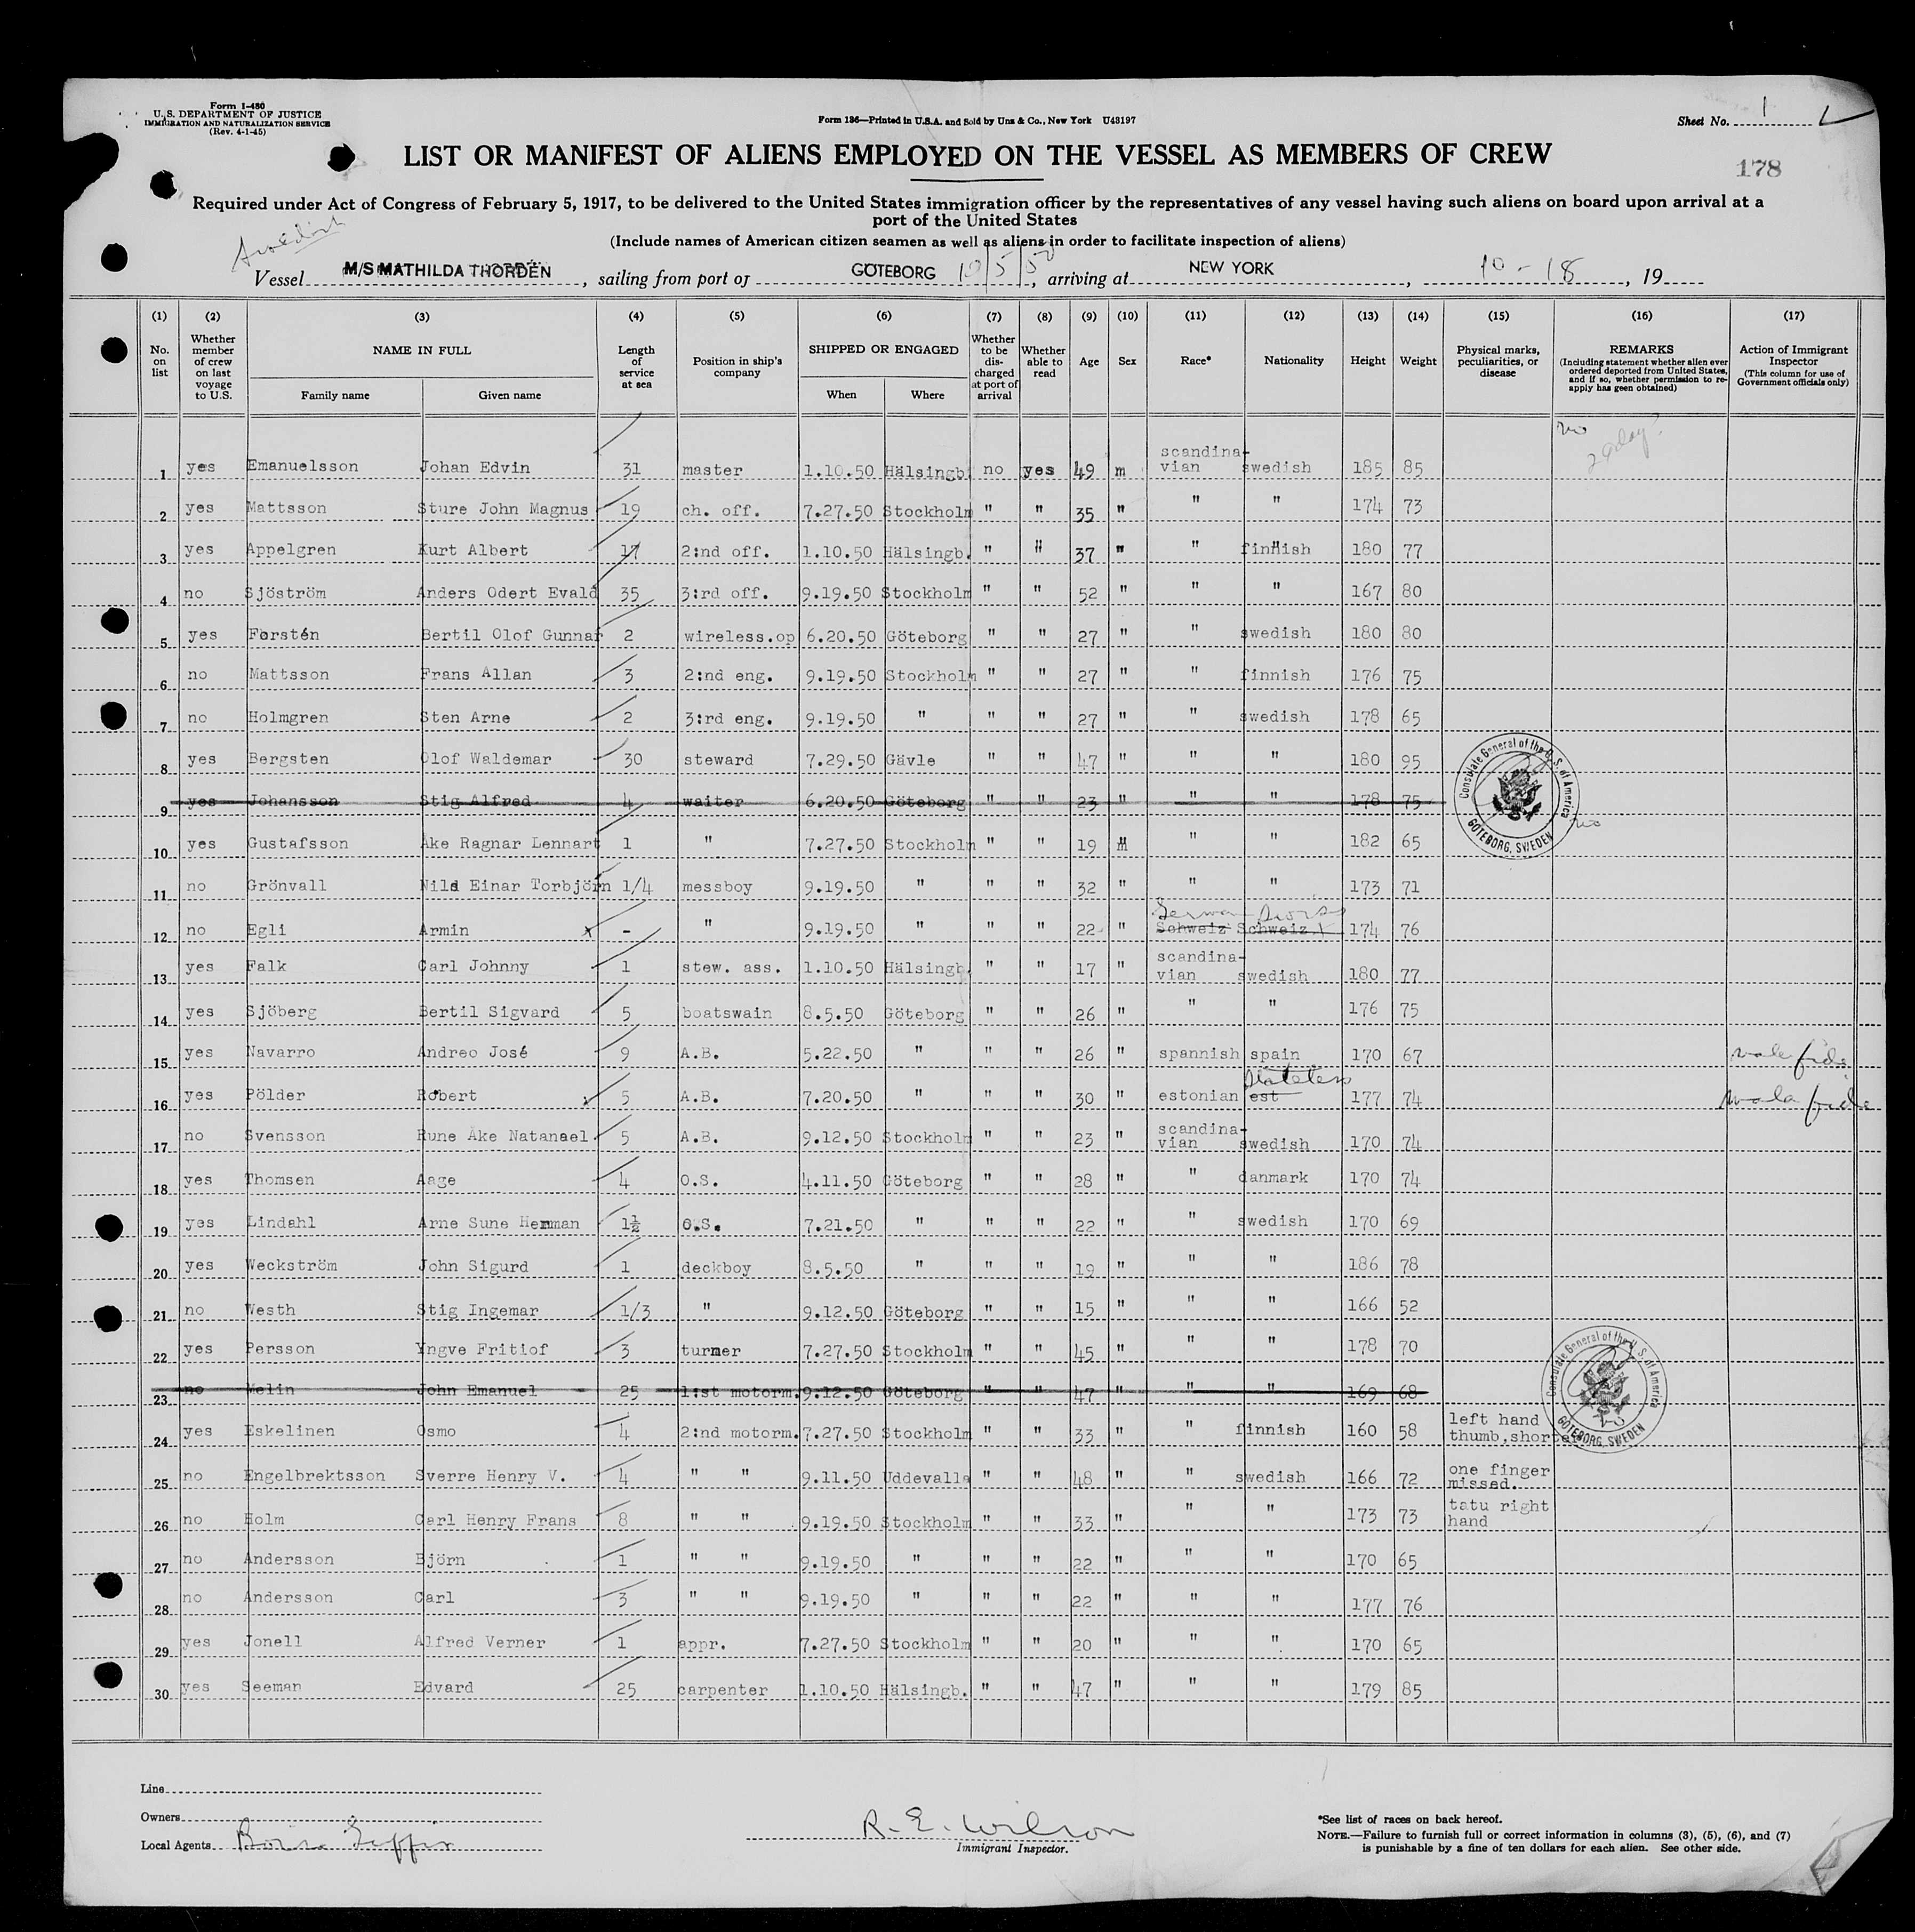 Form I-480
U. S. DEPARTMENT OF JUSTICE
IMMIGRATION AND NATURALIZATION SERVICE
(Rev. 4-1-45)
Form 186—Printed in U.S.A. and Sold by Unz & Co., New York U43197
Sheet No. 1
LIST OR MANIFEST OF ALIENS EMPLOYED ON THE VESSEL AS MEMBERS OF CREW
178
Required under Act of Congress of February 5, 1917, to be delivered to the United States immigration officer by the representatives of any vessel having such aliens on board upon arrival at a
port of the United States
(Include names of American citizen seamen as well as aliens in order to facilitate inspection of aliens)
Swedish
Vessel M/S MATHILDA THORDÉN, sailing from port of GÖTEBORG 10/5/50, arriving at NEW YORK, 10-18, 19
(1) (2) (3) (4) (5) (6) (7) (8) (9) (10) (11) (12) (13) (14) (15) (16) (17)
No. on list
Whether member of crew on last voyage to U.S.
NAME IN FULL
Family name Given name
Length of service at sea
Position in ship's company
SHIPPED OR ENGAGED
When Where
Whether to be discharged at port of arrival
Whether able to read
Age
Sex
Race*
Nationality
Height
Weight
Physical marks, peculiarities, or disease
REMARKS
(Including statement whether alien ever ordered deported from United States, and if so, whether permission to re-apply has geen obtained)
Action of Immigrant Inspector
(This column for use of Government officials only)
no
29 day
1 yes Emanuelsson Johan Edvin 31 master 1.10.50 Hälsingb. no yes 49 m scandina-vian swedish 185 85
2 yes Mattsson Sture John Magnus 19 ch. off. 7.27.50 Stockholm " " 35 " " " 174 73
3 yes Appelgren Kurt Albert 17 2:nd off. 1.10.50 Hälsingb. " " 37 " " finnish 180 77
4 no Sjöström Anders Odert Evald 35 3:rd off. 9.19.50 Stockholm " " 52 " " " 167 80
5 yes Forstén Bertil Olof Gunnar 2 wireless.op 6.20.50 Göteborg " " 27 " " swedish 180 80
6 no Mattsson Frans Allan 3 2:nd eng. 9.19.50 Stockholm " " 27 " " finnish 176 75
7 no Holmgren Sten Arne 2 3:rd eng. 9.19.50 " " " 27 " " swedish 178 65
8 yes Bergsten Olof Waldemar 30 steward 7.29.50 Gävle " " 47 " " " 180 95
9 yes Johansson Stig Alfred 4 waiter 6.20.50 Göteborg " " 23 " " " 178 75
Consulate General of the U. S. of America
GÖTEBORG, SWEDEN
no
10 yes Gustafsson Åke Ragnar Lennart 1 " 7.27.50 Stockholm " " 19 m " " 182 65
11 no Grönvall Nils Einar Torbjörn 1/4 messboy 9.19.50 " " " 32 " " " 173 71
German Swiss
12 no Egli Armin x - " 9.19.50 " " " 22 " Schweiz Schweiz. 174 76
13 yes Falk Carl Johnny 1 stew. ass. 1.10.50 Hälsingb. " " 17 " scandina-vian swedish 180 77
14 yes Sjöberg Bertil Sigvard 5 boatswain 8.5.50 Göteborg " " 26 " " " 176 75
15 yes Navarro Andreo José 9 A.B. 5.22.50 " " " 26 " spannish spain 170 67 mala fide
Stateless
16 yes Pölder Robert 5 A.B. 7.20.50 " " " 30 " estonian est 177 74 mala fide
17 no Svensson Rune Åke Natanael 5 A.B. 9.12.50 Stockholm " " 23 " scandina-vian swedish 170 74
18 yes Thomsen Aage 4 O.S. 4.11.50 Göteborg " " 28 " " danmark 170 74
19 yes Lindahl Arne Sune Herman 1½ O.S. 7.21.50 " " " 22 " " swedish 170 69
20 yes Weckström John Sigurd 1 deckboy 8.5.50 " " " 19 " " " 186 78
21 no Westh Stig Ingemar 1/3 " 9.12.50 Göteborg " " 15 " " " 166 52
22 yes Persson Yngve Fritiof 3 turner 7.27.50 Stockholm " " 45 " " " 178 70
23 no Melin John Emanuel 25 1:st motorm. 9.12.50 Göteborg " " 47 " " " 169 68
Consulate General of the U. S. of America
GÖTEBORG, SWEDEN
24 yes Eskelinen Osmo 4 2:nd motorm. 7.27.50 Stockholm " " 33 " " finnish 160 58 left hand thumb,shorter
25 no Engelbrektsson Sverre Henry V. 4 " " 9.11.50 Uddevalla " " 48 " " swedish 166 72 one finger missed.
26 no Holm Carl Henry Frans 8 " " 9.19.50 Stockholm " " 33 " " " 173 73 tatu right hand
27 no Andersson Björn 1 " " 9.19.50 " " " 22 " " " 170 65
28 no Andersson Carl 3 " " 9.19.50 " " " 22 " " " 177 76
29 yes Jonell Alfred Verner 1 appr. 7.27.50 Stockholm " " 20 " " " 170 65
30 yes Seeman Edvard 25 carpenter 1.10.50 Hälsingb. " " 47 " " " 179 85
Line
Owners
Local Agents
R. E. Wilson
Immigrant Inspector.
*See list of races on back hereof.
NOTE.—Failure to furnish full or correct information in columns (3), (5), (6), and (7)
is punishable by a fine of ten dollars for each alien. See other side.